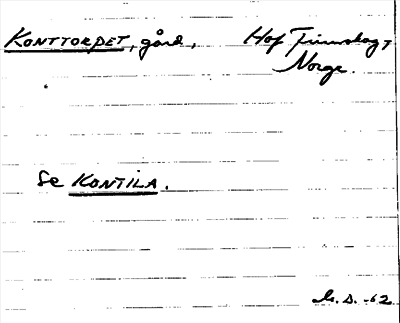 KONTTORPET, gård, Hof Finnskog,
Norge.
Se KONTILA.
-62